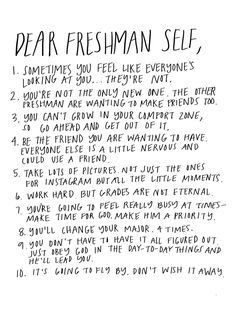 DEAR FRESHMAN SELF,
1. SOMETIMES YOU FEEL LIKE EVERYONE'S
LOOKING AT YOU... THEY'RE NOT.
2. YOU'RE NOT THE ONLY NEW ONE. THE OTHER
FRESHMAN ARE WANTING TO MAKE FRIENDS TOO.
3. YOU CAN'T GROW IN YOUR COMFORT ZONE,
SO GO AHEAD AND GET OUT OF IT.
4. BE THE FRIEND YOU ARE WANTING TO HAVE.
EVERYONE ELSE IS A LITTLE NERVOUS AND
COULD USE A FRIEND.
5. TAKE LOTS OF PICTURES. NOT JUST THE ONES
FOR INSTAGRAM BUT ALL THE LITTLE MOMENTS.
6. WORK HARD. BUT GRADES ARE NOT ETERNAL.
7. YOU'RE GOING TO FEEL REALLY BUSY AT TIMES-
MAKE TIME FOR GOD. MAKE HIM A PRIORITY.
8. YOU'LL CHANGE YOUR MAJOR. 4 TIMES.
9. YOU DON'T HAVE TO HAVE IT ALL FIGURED OUT.
JUST OBEY GOD IN THE DAY-TO-DAY THINGS AND
HE'LL LEAD YOU.
10. IT'S GOING TO FLY BY. DON'T WISH IT AWAY